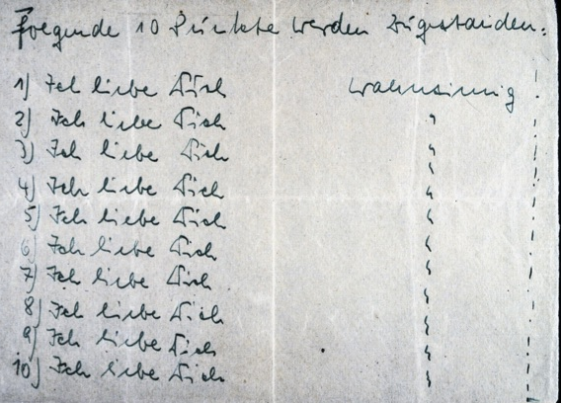 Folgende 10 Punkte werden zugestanden:
1) Ich liebe Dich wahnsinnig !
2) Ich liebe Dich " !
3) Ich liebe Dich " !
4) Ich liebe Dich " !
5) Ich liebe Dich " !
6) Ich liebe Dich " !
7) Ich liebe Dich " !
8) Ich liebe Dich " !
9) Ich liebe Dich " !
10) Ich liebe Dich " !